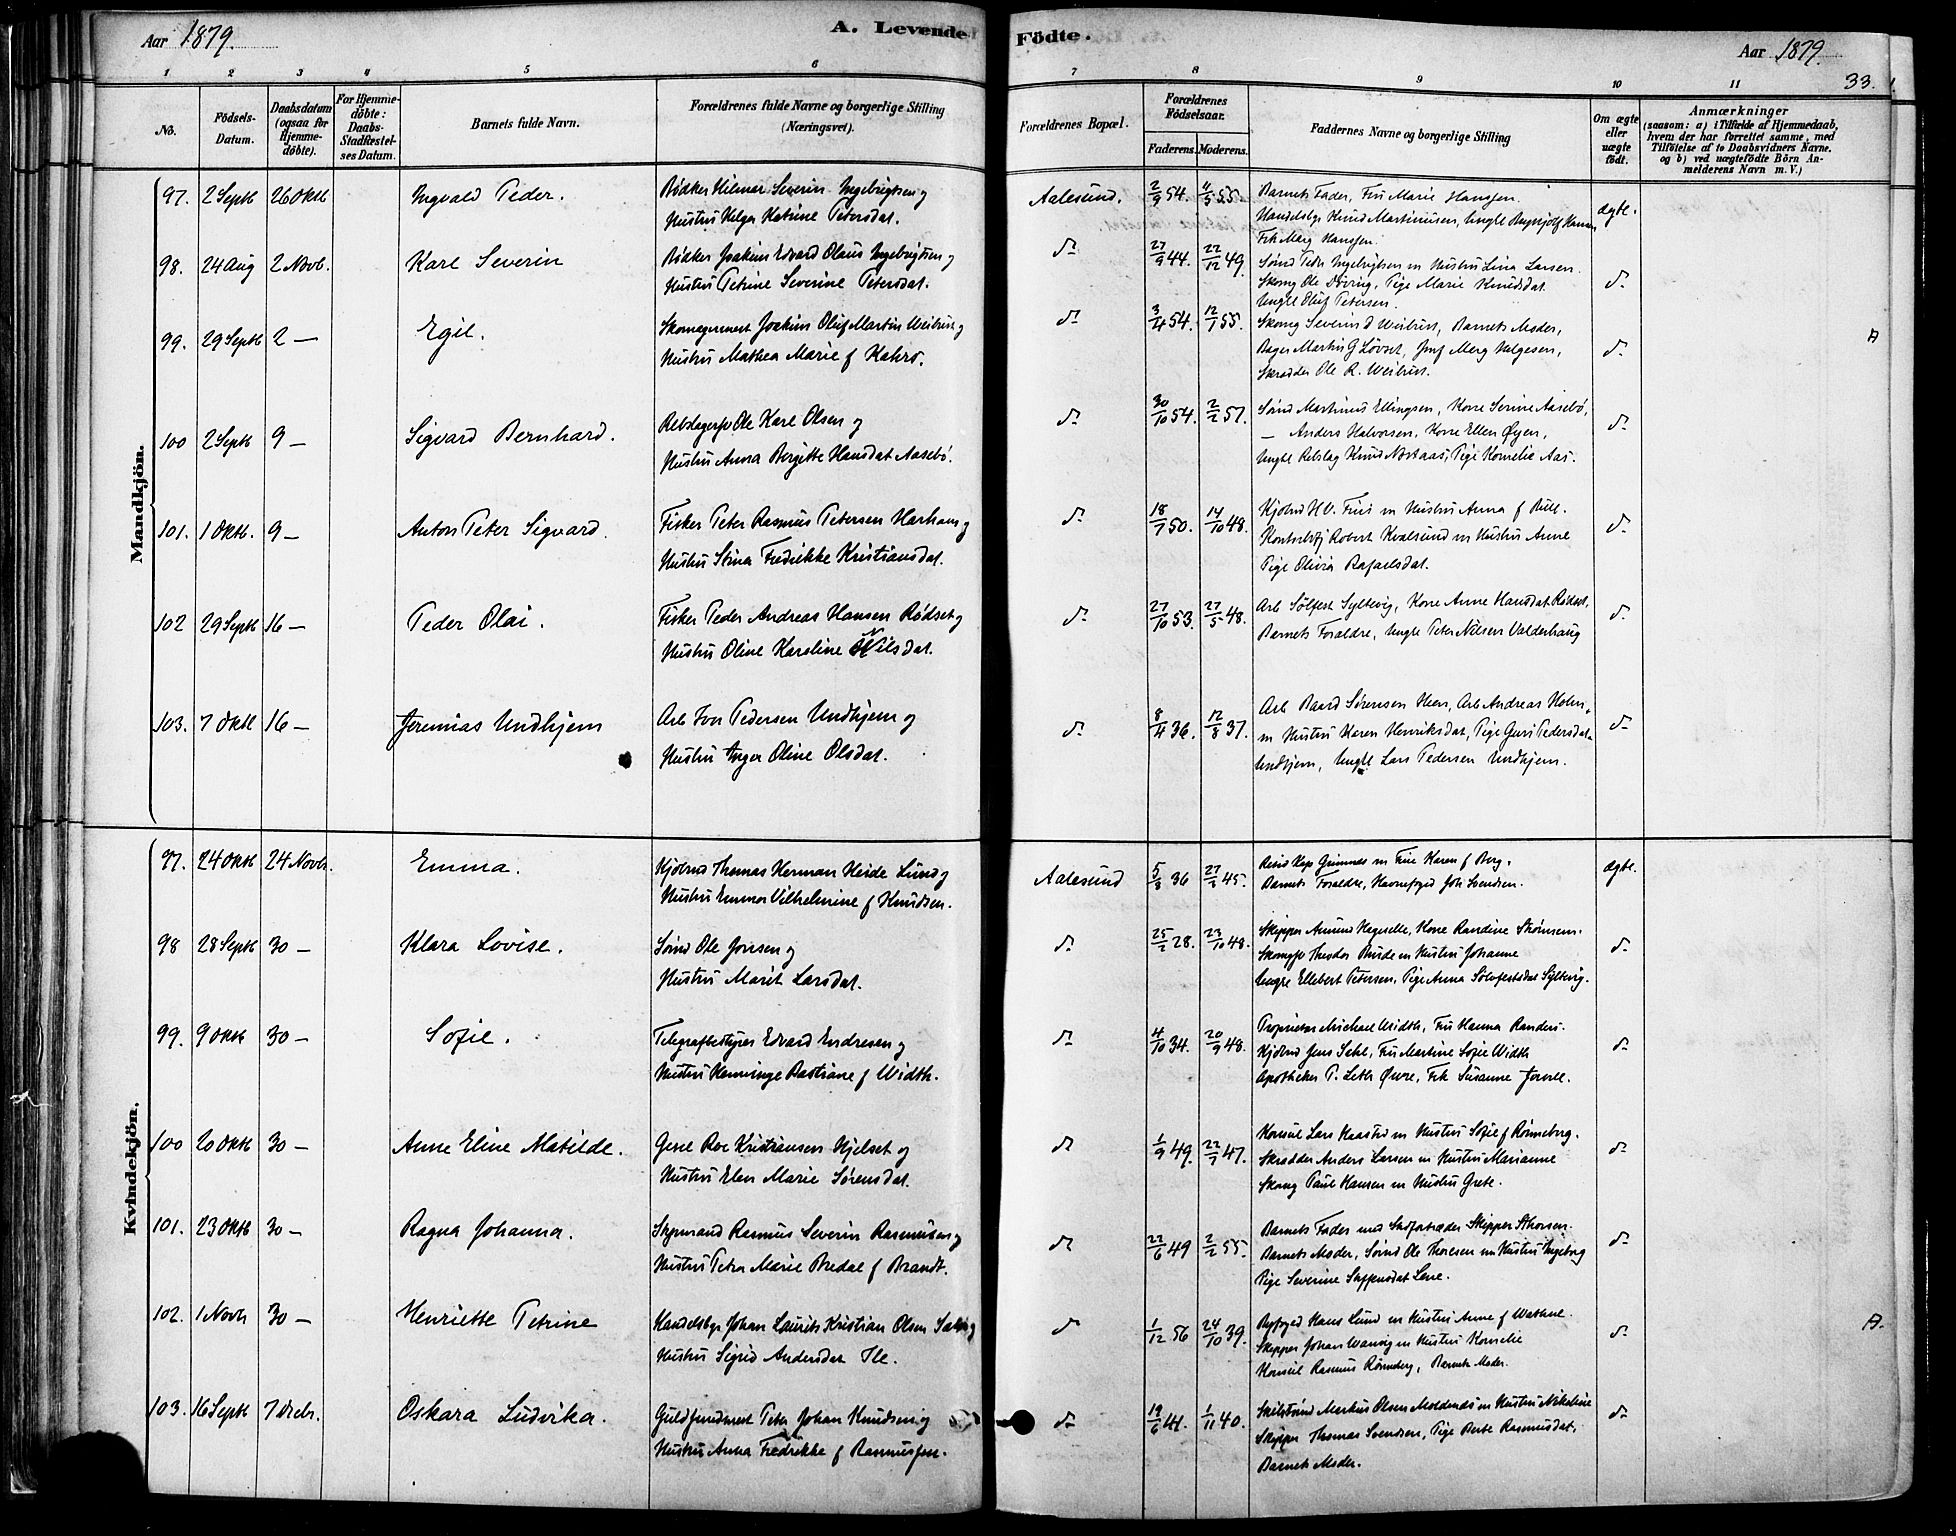 Aar 1879.
A. Levende
Födte.
Aar 1879.
33.
1 2 3 4 5 6 7 8 9 10 11
No.
Födsels-
Datum.
Daabsdatum
(ogsaa för
Hjemme-
döbte).
For Hjemme-
döbte:
Daabs-
Stadfæstel-
ses Datum.
Barnets fulde Navn.
Forældrenes fulde Navne og borgerlige Stilling
(Næringsvei).
Forældrenes Bopæl.
Forældrenes
Födselsaar.
Faderens. Moderens.
Faddernes Navne og borgerlige Stilling
Om ægte
eller
uægte
født.
Anmærkninger
(saasom: a) i Tilfælde af Hjemmedaab,
hvem der har forrettet samme, med
Tilföielse af to Daabsvidners Navne,
og b) ved uægtefödte Börn An-
melderens Navn m. V.)
Mandkjön.
97. 2 Septb 26 Oktb Ingvald Peder.
Bødker Hilmar Severin Ingebrigtsen og
Hustru Helga Katrine Petersdat.
Aalesund. 2/9 54. 4/5 55.
Barnets Fader, Fru Marie Hanssen.
Handelsbge Knud Martinusen, Ungkl Brynjolf Hansen
Frk Marg Hanssen.
ægte.
98. 24 Aug 2 Novb. Karl Severin
Bødker Joakim Edvard Olaus Ingebrigtsen og
Hustru Petrine Severine Petersdat.
do 27/9 44. 22/12 49.
Sømd Peder Ingebrigtsen m Hustru Lina Larsen.
Skomg Ole Døving, Pige Marie Knudsdat.
Ungkl Oluf Petersen.
do
99. 29 Septb 2 — Egil.
Skomagermest Joakim Oluf Martin Weibust og
Hustru Mathea Marie f Kahrs.
do 3/4 54. 12/1 55.
Skomg Severin d Weibust, Barnets Moder,
Bager Martin G Løvset, Jmf Marg Helgesen,
Skrædder Ole R. Weibust.
do A
100 2 Septb 9 — Sigvard Bernhard.
Rebslagersv Ole Karl Olsen og
Hustru Anna Bergitte Hansdat Aasebø.
do 30/10 54. 2/2 57.
Sømd Martinus Ellingsen, Kone Serine Aasebø,
— Anders Halvorsen, Kone Ellen Øyen,
Ungkl Rebslag Knud Nostaas, Pige Kornelie Aas.
do
101. 1 Oktb. 9 — Anton Peter Sigvard.
Fisker Peter Rasmus Petersen Harham og
Hustru Stina Fredrikke Kristiansdat.
do 18/7 50. 14/10 48.
Kjøbmd H.V. Friis m Hustru Anna f Bull.
Kontorbtj Robert Kvalsund m Hustru Anne
Pige Olivia Rafaelsdat.
do
102 29 Septb 16 — Peder Olai.
Fisker Peder Andreas Hansen Rødset og
Hustru Oline Karoline Nilsdat.
do 27/10 53. 27/5 48.
Arb Sølfest Syltevig, Kone Anne Hansdat Rødset,
Barnets Forældre, Ungkl Peter Nilsen Valderhaug
do
103. 7 Oktb 16 — Jeremias Undhjem
Arb Iver Pedersen Undhjem og
Hustru Inger Oline Olsdat.
do 8/4 36. 12/8 37.
Arb Baard Sørensen Heen, Arb Andreas Holm,
m Hustru Karen Henriksdat, Pige Guri Pedersdat
Undhjem, Ungkl Lars Pedersen Undhjem.
do
Kvindekjön.
97. 24 Oktb 24 Novb. Emma.
Kjøbmd Thomas Herman Heide Lund og
Hustru Emma Vilhelmine f Knudsen.
Aalesund 5/8 36 27/2 45.
Resid Kap Grimnes m Frue Karen f Berg.
Barnets Forældre, Havnefoged Joh Svendsen.
ægte.
98 28 Septb 30 — Klara Lovise.
Sømd Ole Jonsen og
Hustru Marit Larsdat.
do 25/2 28. 23/10 48.
Skipper Amund Hagnelle, Kone Randine Strømsem.
Skomgsv Theodor Buide m Hustru Johanne
Ungkl Ellebert Petersen, Pige Anna Sølvfestsdat Syltevig.
do
99. 9 Oktb 30 — Sofie.
Telegrafbestyrer Edvard Endresen og
Hustru Henninge Bastiane f Width.
do 4/10 34. 20/9 48.
Proprietær Michael Width, Fru Hanna Randers.
Kjøbmd Jens Dahl, Fru Martine Sofie Width
Apotheker P. Leth Øwre, Frk Susanne Jervell.
do
100 20 Oktb 30 — Anne Eline Matilde.
Gesel Roe Kristiansen Hjelset og
Hustru Elen Marie Sørensdat.
do 1/9 49. 22/7 47.
Konsul Lars Kaastad m Hustru Sofie f Rønneberg.
Skrædder Anders Larsen m Hustru Marianne
Skomg Paul Hansen m Hustru Grete.
do
101. 23 Oktb 30 — Ragna Johanna.
Styrmand Rasmus Severin Rasmussen og
Hustru Petra Marie Bredal f Brandt.
do 22/6 49 2/2 55.
Barnets Fader med Stedfortræder Skipper Sthorsen.
Barnets Moder, Sømd Ole Thoresen m Hustru Ingeborg
Pige Severine Steffensdat Lene.
do
102. 1 Novb 30 — Henriette Petrine
Handelsbge Johan Laurits Kristian Olsen
Hustru Sigrid Andersdat Ile.
do 1/12 56 24/10 39.
Byfoged Hans Lund m Hustru Anne f Wathne.
Skipper Johan Wanvig m Hustru Kornelie
Konsul Rasmus Rønneberg, Barnets Moder.
do A.
103. 16 Septb 7 Decbr. Oskara Ludvika.
Guldsmedmest Peter Johan Knudsen og
Hustru Anna Fredrikke f Rasmussen.
do 19/6 41. 1/11 40.
Skibstømd Markus Olsen Moldenæs m Hustru Nikoline
Skipper Thomas Svendsen, Pige Berte Rasmusdat,
Barnets Moder.
do